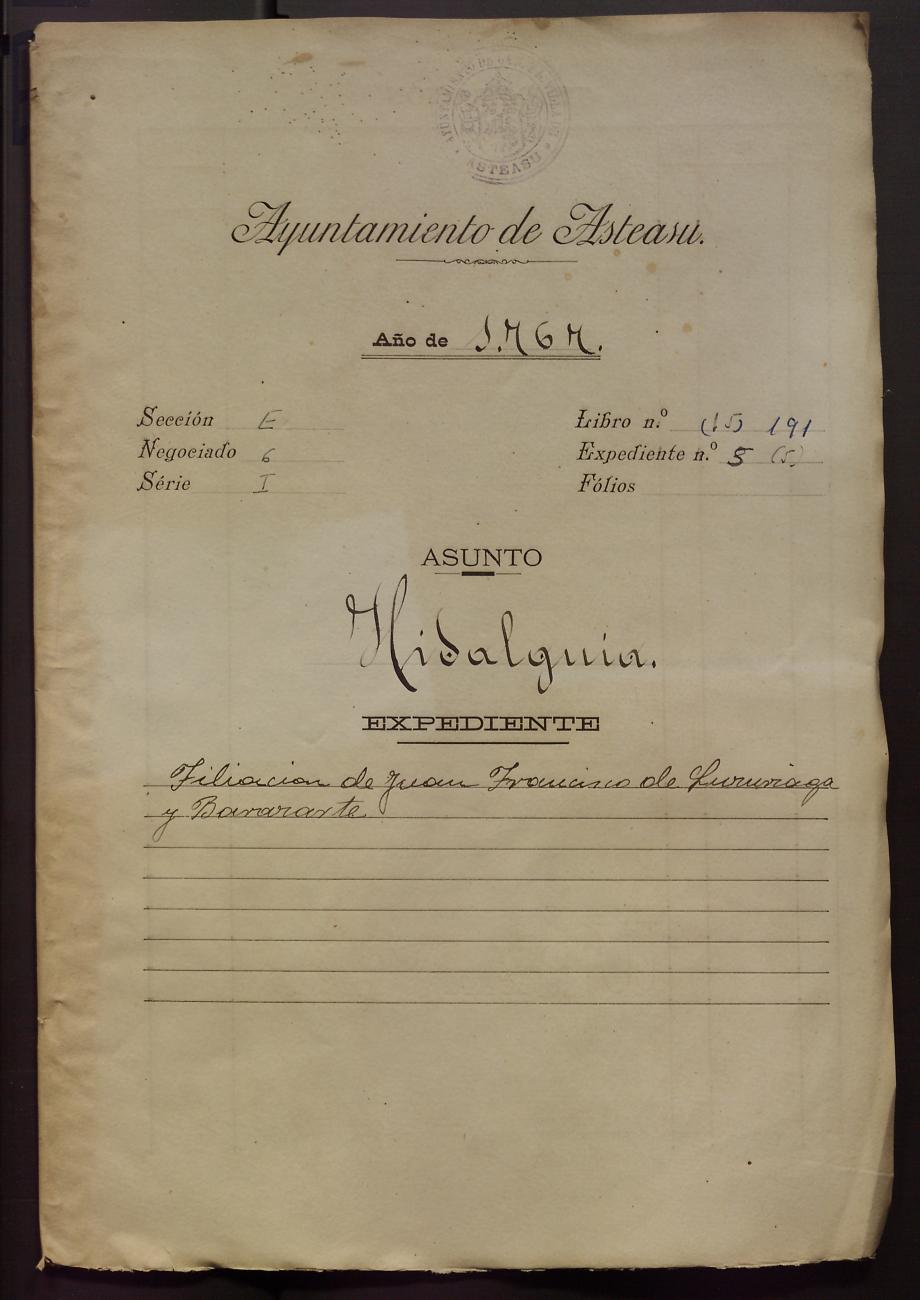 ASTEASU
Ayuntamiento de Asteasu.
Año de 1.767.
Sección E
Negociado 6
Série I
Libro n.º (15) 191
Expediente n.º 5 (5)
Fólios
ASUNTO
Hidalguia.
EXPEDIENTE
Filiacion de Juan Francisco de Luzuriaga
y Bararzarte